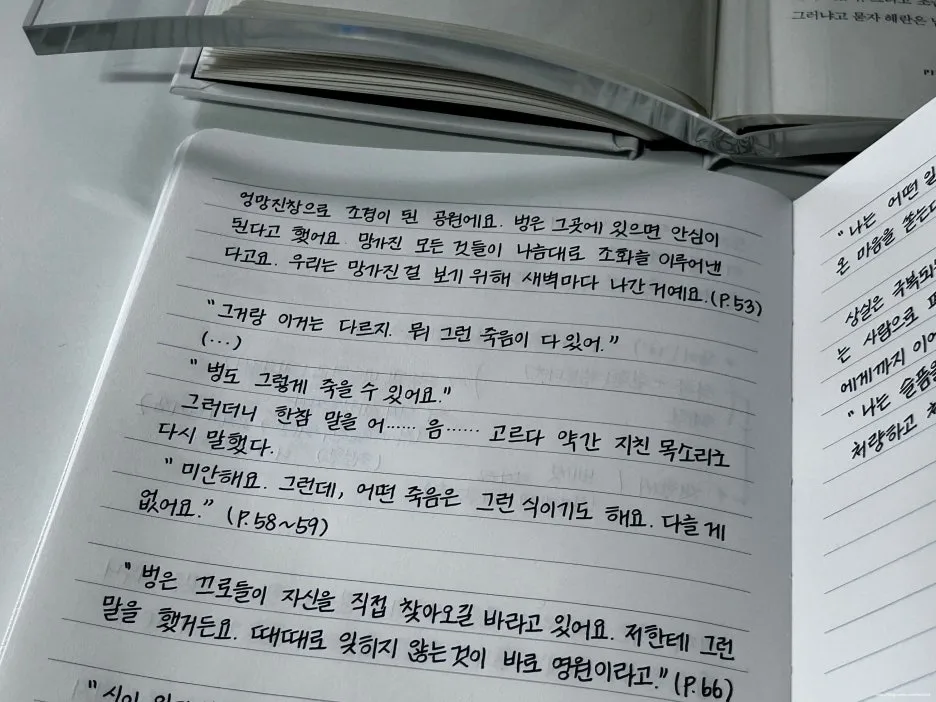 그러냐고 묻자 해란은
엉망진창으로 조경이 된 공원에요. 벙은 그곳에 있으면 안심이
된다고 했어요. 망가진 모든 것들이 나름대로 조화를 이루어낸
다고요. 우리는 망가진 걸 보기 위해 새벽마다 나간 거예요.(P.53)
"그거랑 이거는 다르지. 뭐 그런 죽음이 다 있어."
(...)
"벙도 그렇게 죽을 수 있어요."
그러더니 한참 말을 어…… 음…… 고르다 약간 지친 목소리로
다시 말했다.
"미안해요. 그런데, 어떤 죽음은 그런 식이기도 해요. 다를 게
없어요." (P.58~59)
"벙은 끄로들이 자신을 직접 찾아오길 바라고 있어요. 저한테 그런
말을 했거든요. 때때로 잊히지 않는 것이 바로 영원이라고."(P.66)
"나는 어떤 일
온 마음을 쏟는다
상실은 극복되는
는 사람으로
에게까지 이어
"나는 슬픔을
처량하고